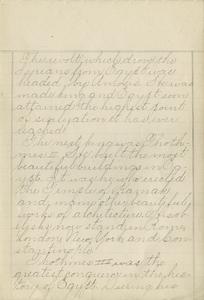 The revolt which drove the
Syrians from Egypt was
headed by Amosis. He was
made king and Egypt soon
attained the highest point
of civilization it has ever
reached.
The next king was Thoth-
mes II. He built the most
beautiful buildings in E
gypt. It was he who erected
the Temple of Karnak
and many other beautiful
works of architecture. His ob
elisks now stand in Rome,
London New York and Con
stantinople.
Thothmes III was the
greatest conqueror in the his
tory of Egypt. During his